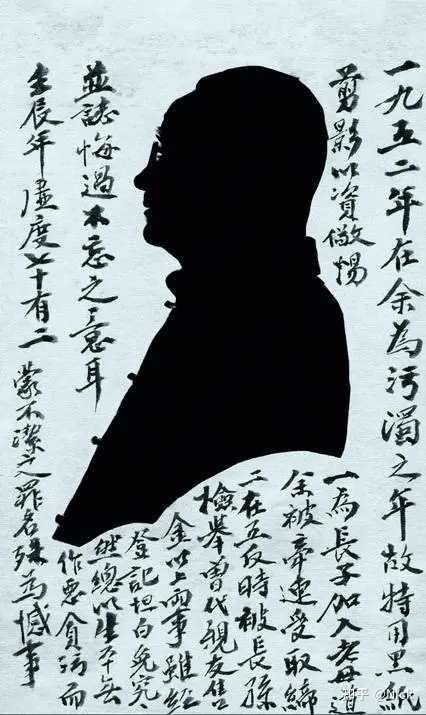 一九五二年在余為污濁之年故特用黑紙
剪影以資儆惕
一為長子加入老母道
余被牽連受取締
二在五反時被長孫
檢舉曾代親友售
金以上兩事雖經
登記坦白免究
然總以生平無
作惡貪污而
蒙不潔之罪名殊為憾事
並誌悔過不忘之意耳
壬辰年虛度七十有二
知乎